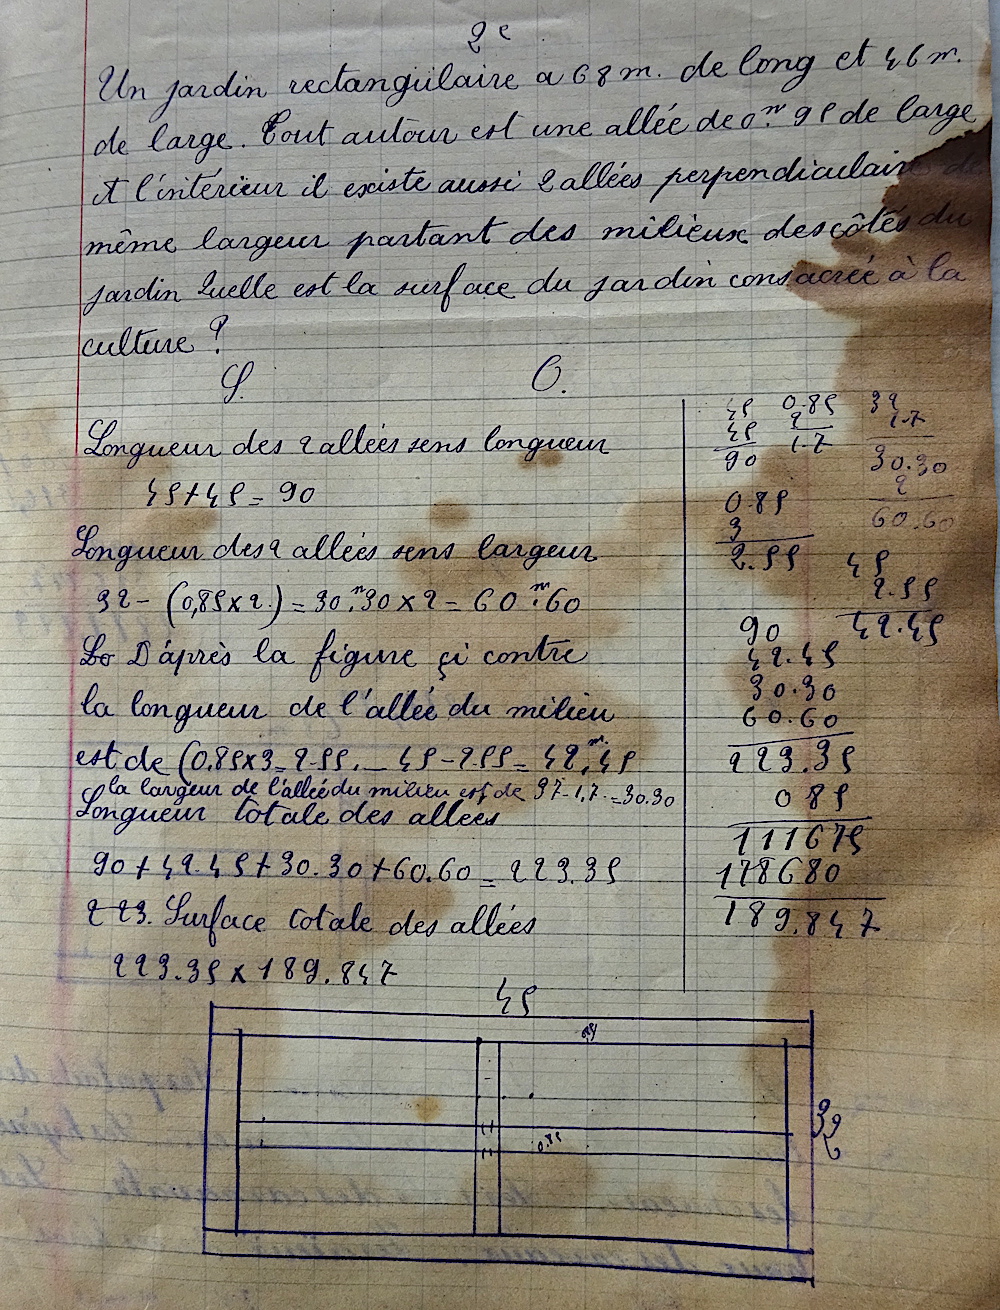 2e
Un jardin rectangulaire a 68 m. de long et 46 m.
de large. Tout autour est une allée de 0m.95 de large
et l'intérieur il existe aussi 2 allées perpendiculaire de
même largeur partant des milieux des côtés du
jardin Quelle est la surface du jardin consacrée à la
culture ?
S. O.
Longueur des 2 allées sens longueur
45+45 = 90
Longueur des 2 allées sens largeur
32 - (0,85 x 2.) = 30.m30 x 2 = 60m.60
Le D'après la figure çi contre
la longueur de l'allée du milieu
est de (0.85x3 = 2-55. _ 45-2.55 = 42,m45
la largeur de l'allée du milieu est de 32-1,7. = 30.30
Longueur totale des allées
90 + 42.45 + 30.30 + 60.60 = 223.35
223. Surface totale des allées
223.35 x 189.847
45 0.85 32
45 2 1.7
90 1.7 30.30
2
0.85 60.60
3
2.55 45
2.55
90 42.45
42.45
30.30
60.60
223.35
085
111675
178680
189.847
45
0,85
32
0.85